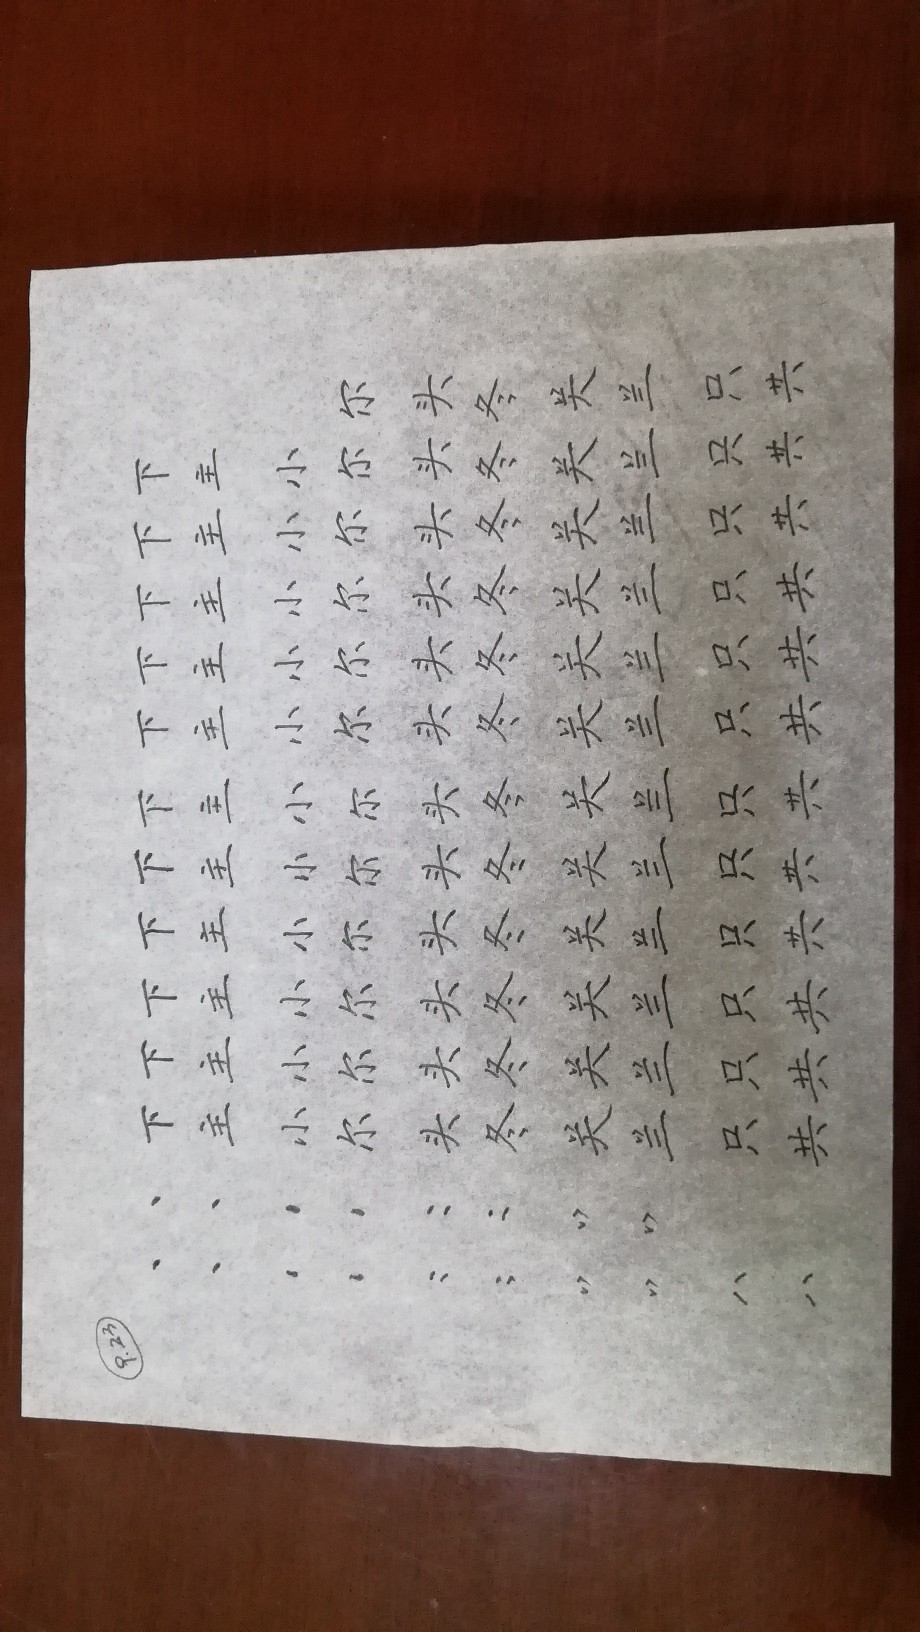 9.23
丶 丶 下 下 下 下 下 下 下 下 下 下 下
丶 丶 主 主 主 主 主 主 主 主 主 主 主
小 小 小 小 小 小 小 小 小 小 小
尔 尔 尔 尔 尔 尔 尔 尔 尔 尔 尔 尔
头 头 头 头 头 头 头 头 头 头 头 头
冬 冬 冬 冬 冬 冬 冬 冬 冬 冬 冬 冬
关 关 关 关 关 关 关 关 关 关 关 关
兰 兰 兰 兰 兰 兰 兰 兰 兰 兰 兰 兰
八 只 只 只 只 只 只 只 只 只 只 只 只
八 共 共 共 共 共 共 共 共 共 共 共 共